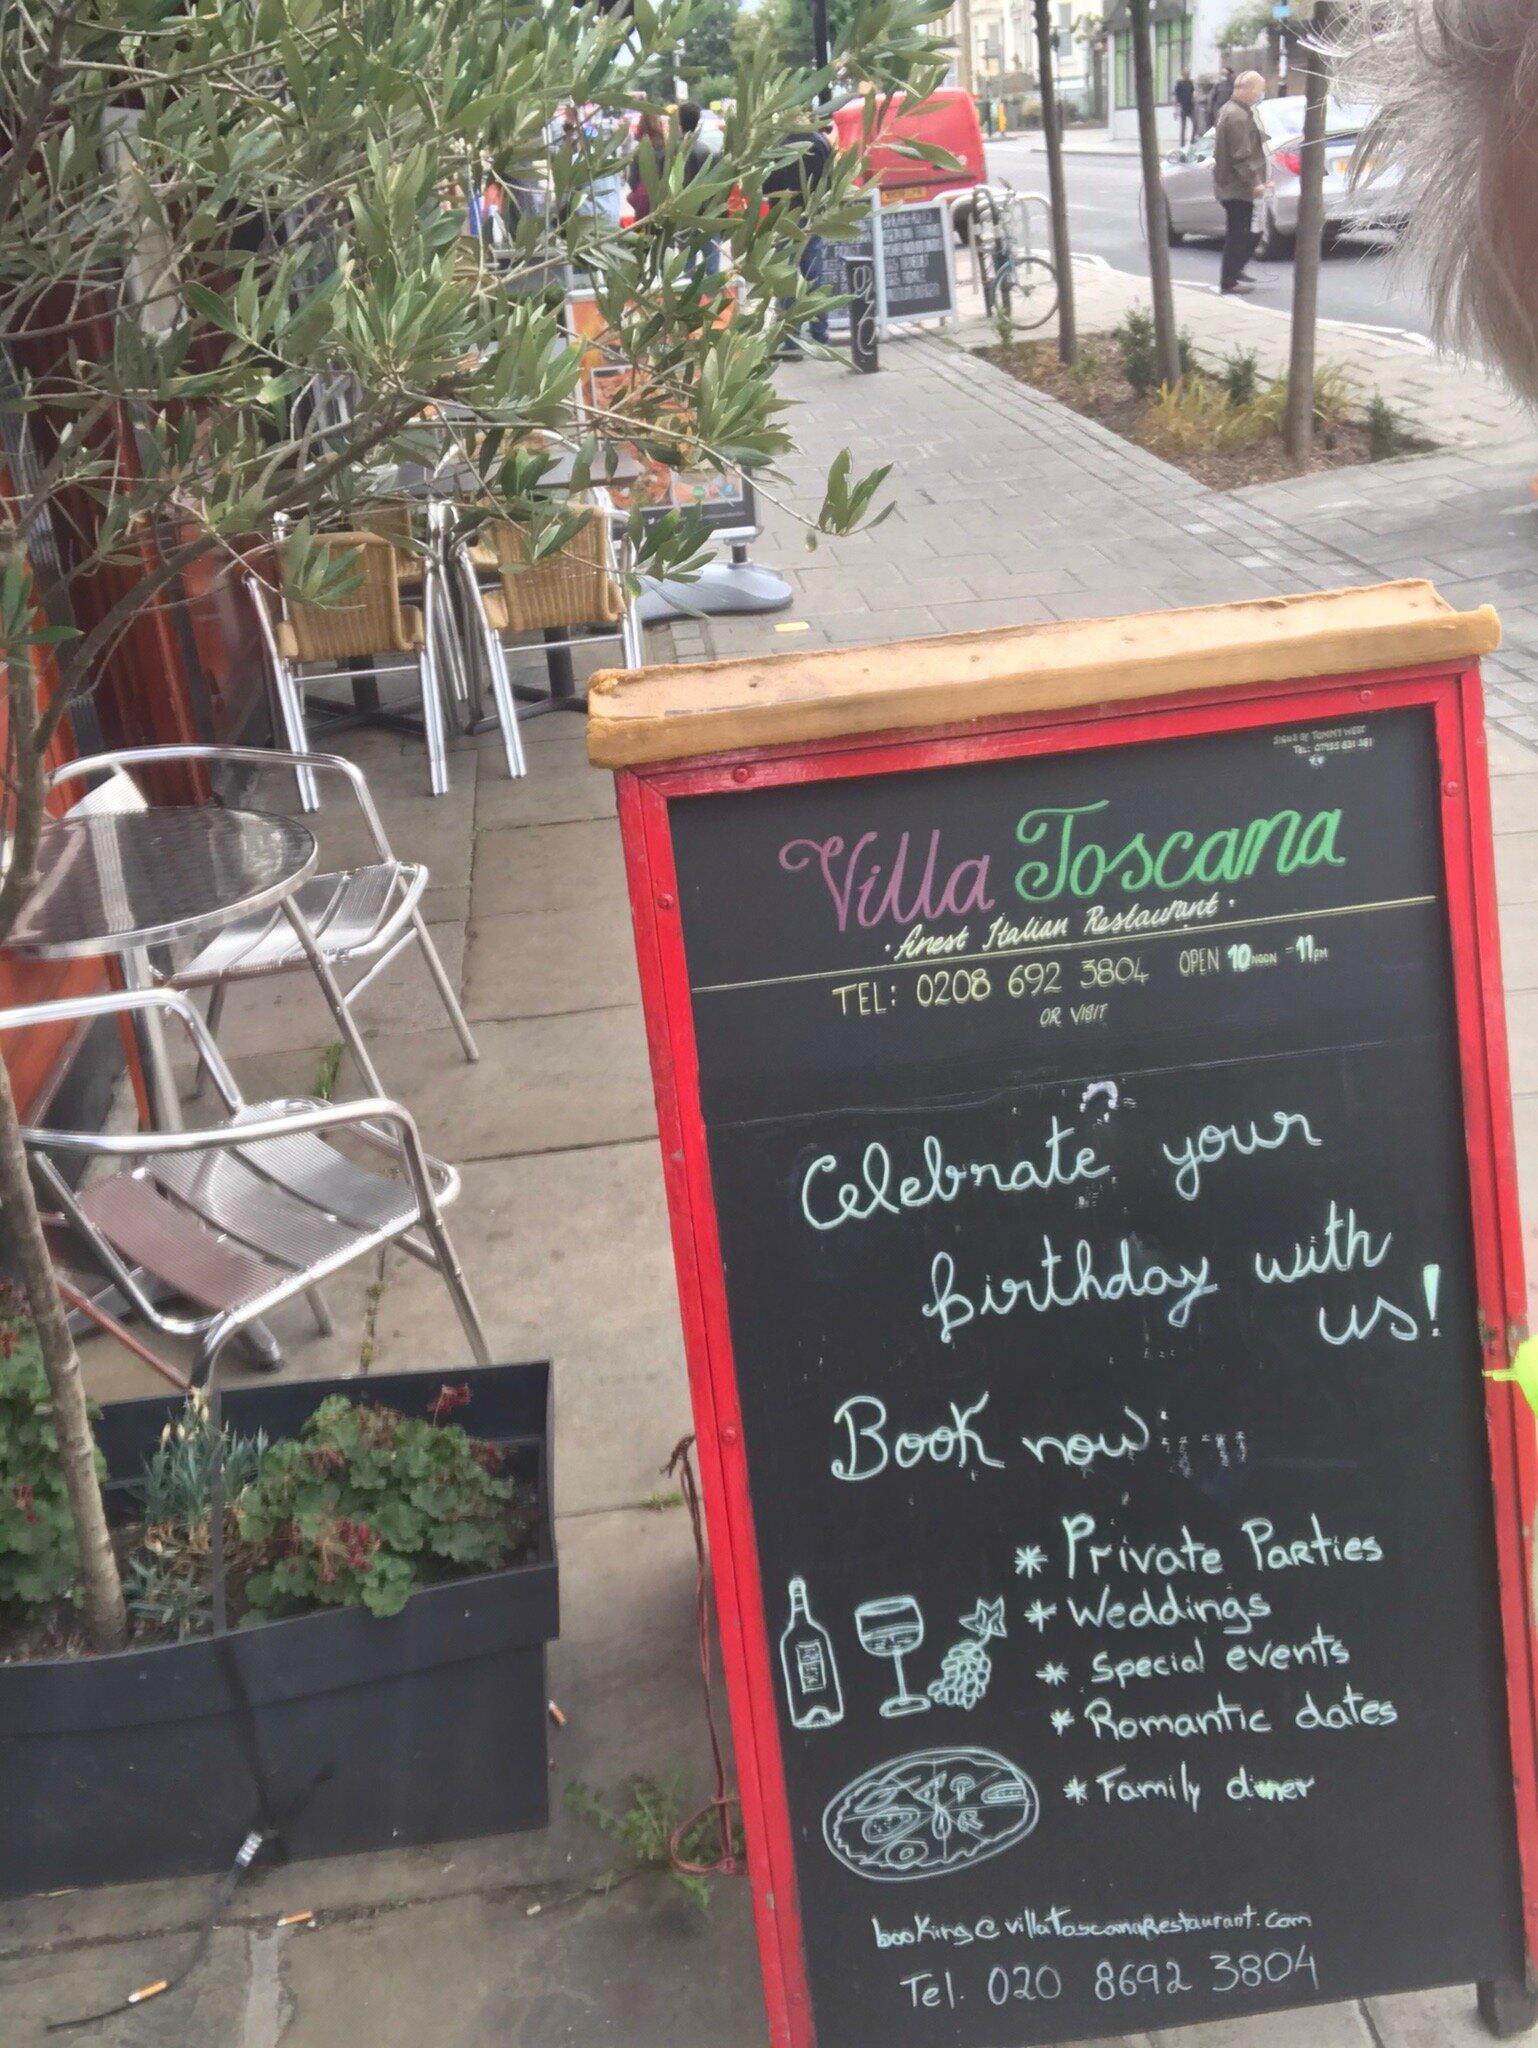 SIGNS BY TOMMY WEST
Villa Toscana
· finest Italian Restaurant ·
TEL: 0208 692 3804 OPEN 10 NOON - 11PM
OR VISIT
Celebrate your
birthday with
us!
Book now
* Private Parties
* Weddings
* Special events
* Romantic dates
* Family diner
booking@villaToscanaRestaurant.com
Tel. 020 8692 3804